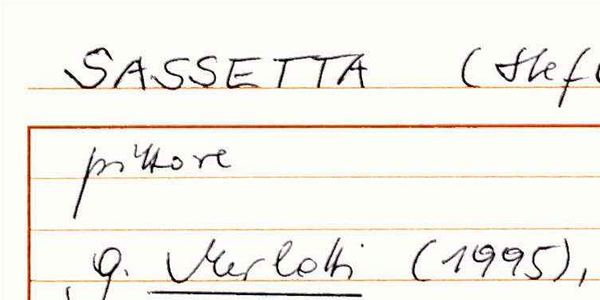 SASSETTA (Stef
pittore
g. Merlotti (1995),